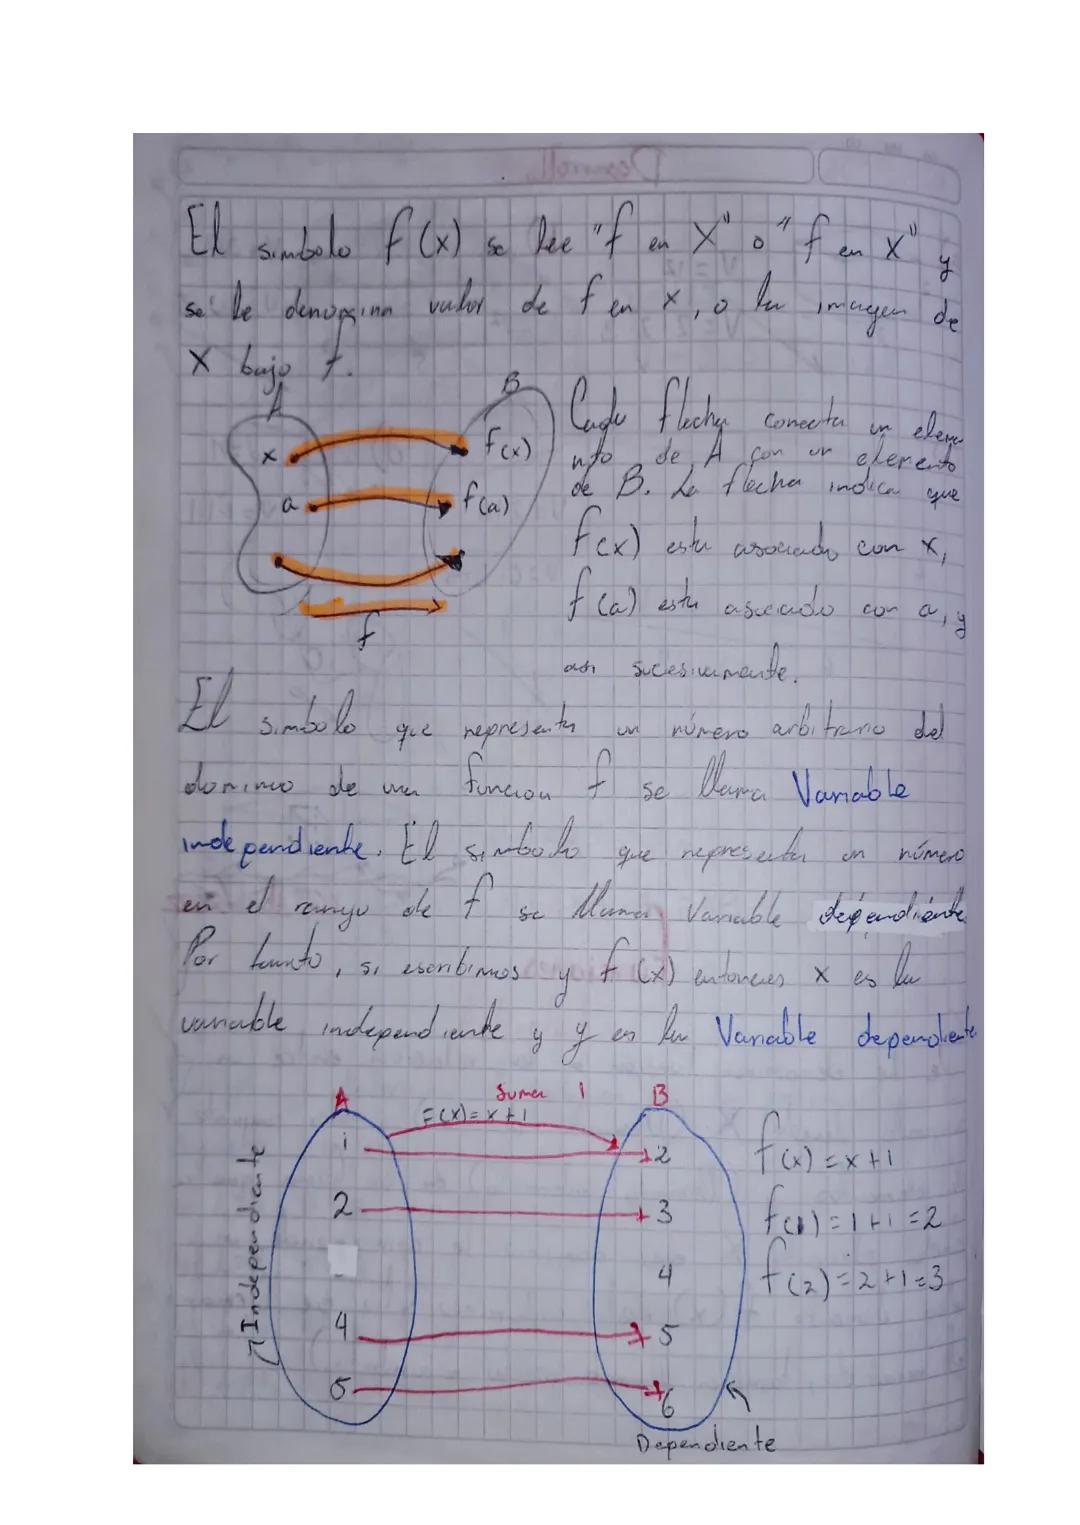 El simbolo f(x) se lee "f en X" o "f en X" y
se le denomina valor de f en x, o la imagen de
X bajo f.
A
B
x
f(x)
a
f(a)
f
Cada flecha conecta un eleme
nto de A con un elemento
de B. La flecha indica que
f(x) esta asociado con x,
f(a) esta asociado con a, y
asi sucesivamente.
El simbolo que representa un número arbitrario del
dominio de una funcion f se llama Variable
independiente. El simbolo que representa un número
en el rango de f se llama Variable dependiente
Por tanto, si escribimos y f(x) entonces x es la
variable independiente y y es la Variable dependiente
A
Suma 1
B
F(x)=x+1
1
2
2
3
4
4
5
5
6
Independiente
Dependiente
f(x)=x+1
f(1)=1+1=2
f(2)=2+1=3